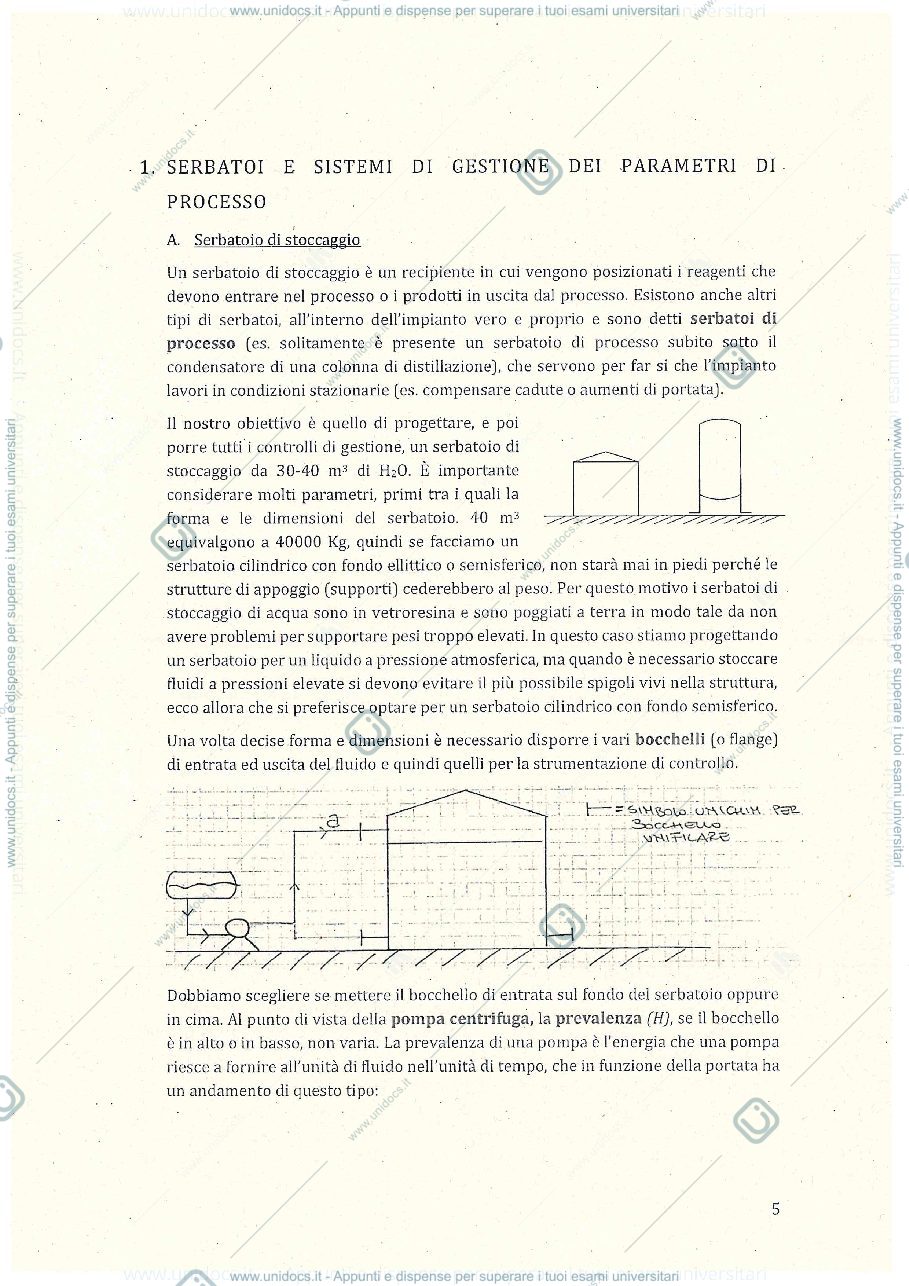 www.unidocs.it - Appunti e dispense per superare i tuoi esami universitari
1. SERBATOI E SISTEMI DI GESTIONE DEI PARAMETRI DI
PROCESSO
A. Serbatoio di stoccaggio
Un serbatoio di stoccaggio è un recipiente in cui vengono posizionati i reagenti che
devono entrare nel processo o i prodotti in uscita dal processo. Esistono anche altri
tipi di serbatoi, all'interno dell'impianto vero e proprio e sono detti serbatoi di
processo (es. solitamente è presente un serbatoio di processo subito sotto il
condensatore di una colonna di distillazione), che servono per far si che l'impianto
lavori in condizioni stazionarie (es. compensare cadute o aumenti di portata).
Il nostro obiettivo è quello di progettare, e poi
porre tutti i controlli di gestione, un serbatoio di
stoccaggio da 30-40 m³ di H₂O. È importante
considerare molti parametri, primi tra i quali la
forma e le dimensioni del serbatoio. 40 m³
equivalgono a 40000 Kg, quindi se facciamo un
serbatoio cilindrico con fondo ellittico o semisferico, non starà mai in piedi perché le
strutture di appoggio (supporti) cederebbero al peso. Per questo motivo i serbatoi di
stoccaggio di acqua sono in vetroresina e sono poggiati a terra in modo tale da non
avere problemi per supportare pesi troppo elevati. In questo caso stiamo progettando
un serbatoio per un liquido a pressione atmosferica, ma quando è necessario stoccare
fluidi a pressioni elevate si devono evitare il più possibile spigoli vivi nella struttura,
ecco allora che si preferisce optare per un serbatoio cilindrico con fondo semisferico.
Una volta decise forma e dimensioni è necessario disporre i vari bocchelli (o flange)
di entrata ed uscita del fluido e quindi quelli per la strumentazione di controllo.
a
= SIMBOLO UNICHIM PER
BOCCHELLO
UNIFILARE
Dobbiamo scegliere se mettere il bocchello di entrata sul fondo del serbatoio oppure
in cima. Al punto di vista della pompa centrifuga, la prevalenza (H), se il bocchello
è in alto o in basso, non varia. La prevalenza di una pompa è l'energia che una pompa
riesce a fornire all'unità di fluido nell'unità di tempo, che in funzione della portata ha
un andamento di questo tipo:
5
www.unidocs.it - Appunti e dispense per superare i tuoi esami universitari
www.unidocs.it - Appunti e dispense per superare i tuoi esami universitari
www.unidocs.it - Appunti e dispense per superare i tuoi esami universitari